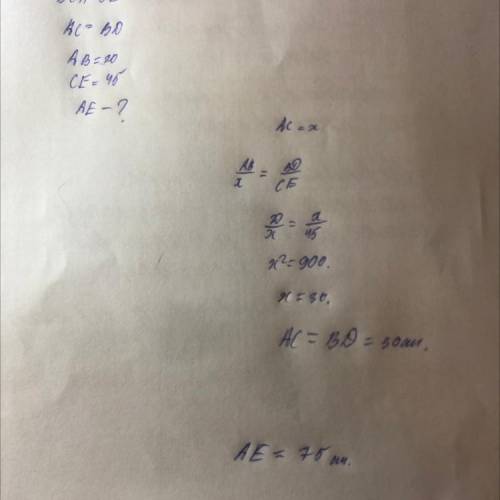 AC = BD
AB = 20
CE = 45
AE - ?
AC = x
AB/x = BD/CE
20/x = x/45
x² = 900.
x = 30.
AC = BD = 30 мм.
AE = 75 мм.